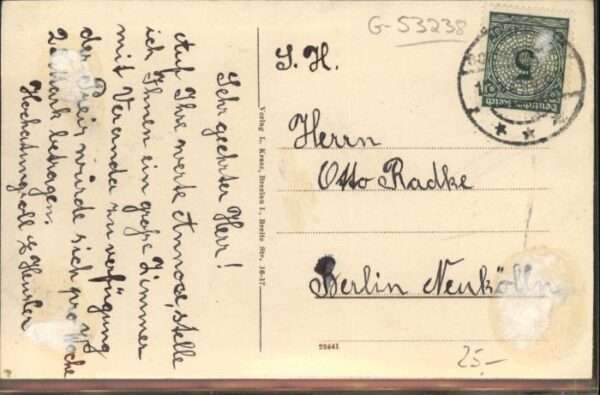 G-53238
5
Deutsches Reich
S. H.
Herrn
Otto Radke
Berlin Neukölln,
Sehr geehrter Herr!
Auf Ihre werte Annonce, stelle
ich Ihnen ein große Zimmer
mit Veranda zu verfügung
der Preis würde sich pro Woche
25 Mark betragen.
Hochachtungsvoll
Verlag L. Kraus, Breslau I, Breite Str. 16-17.
23441
25.-